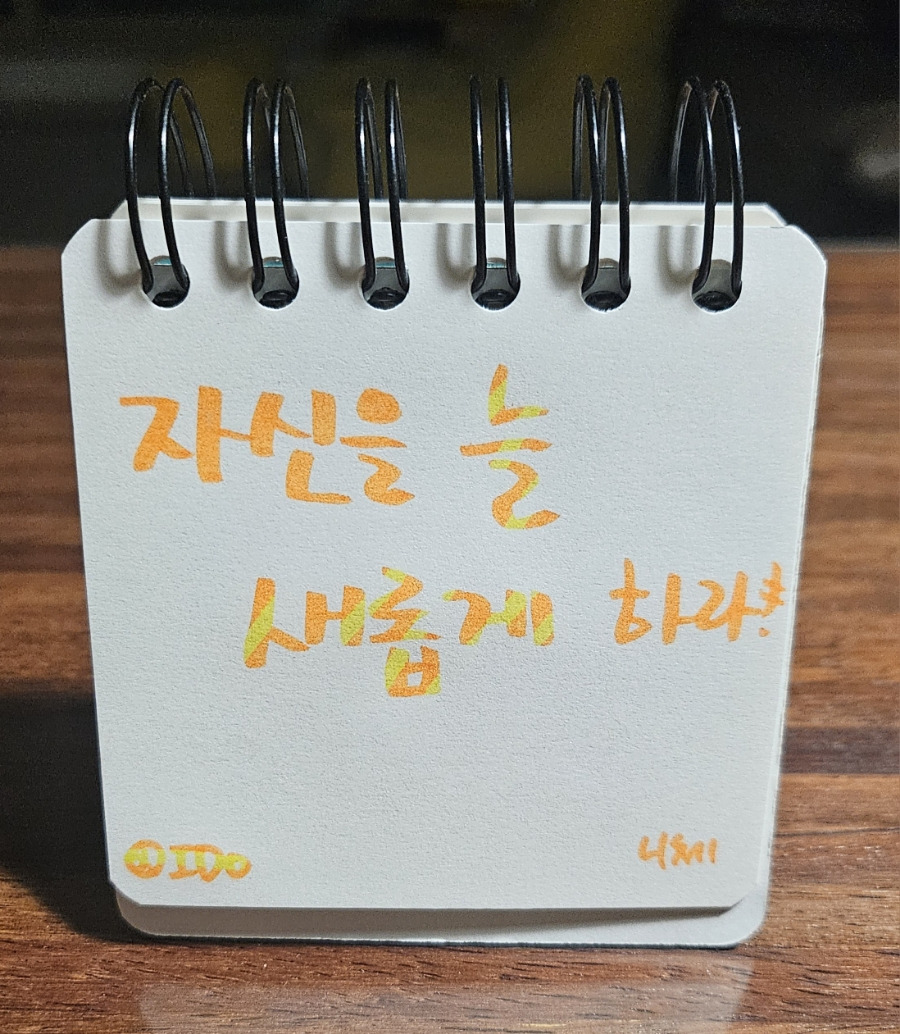 자신을 늘
새롭게 하라!
①IDo 니체